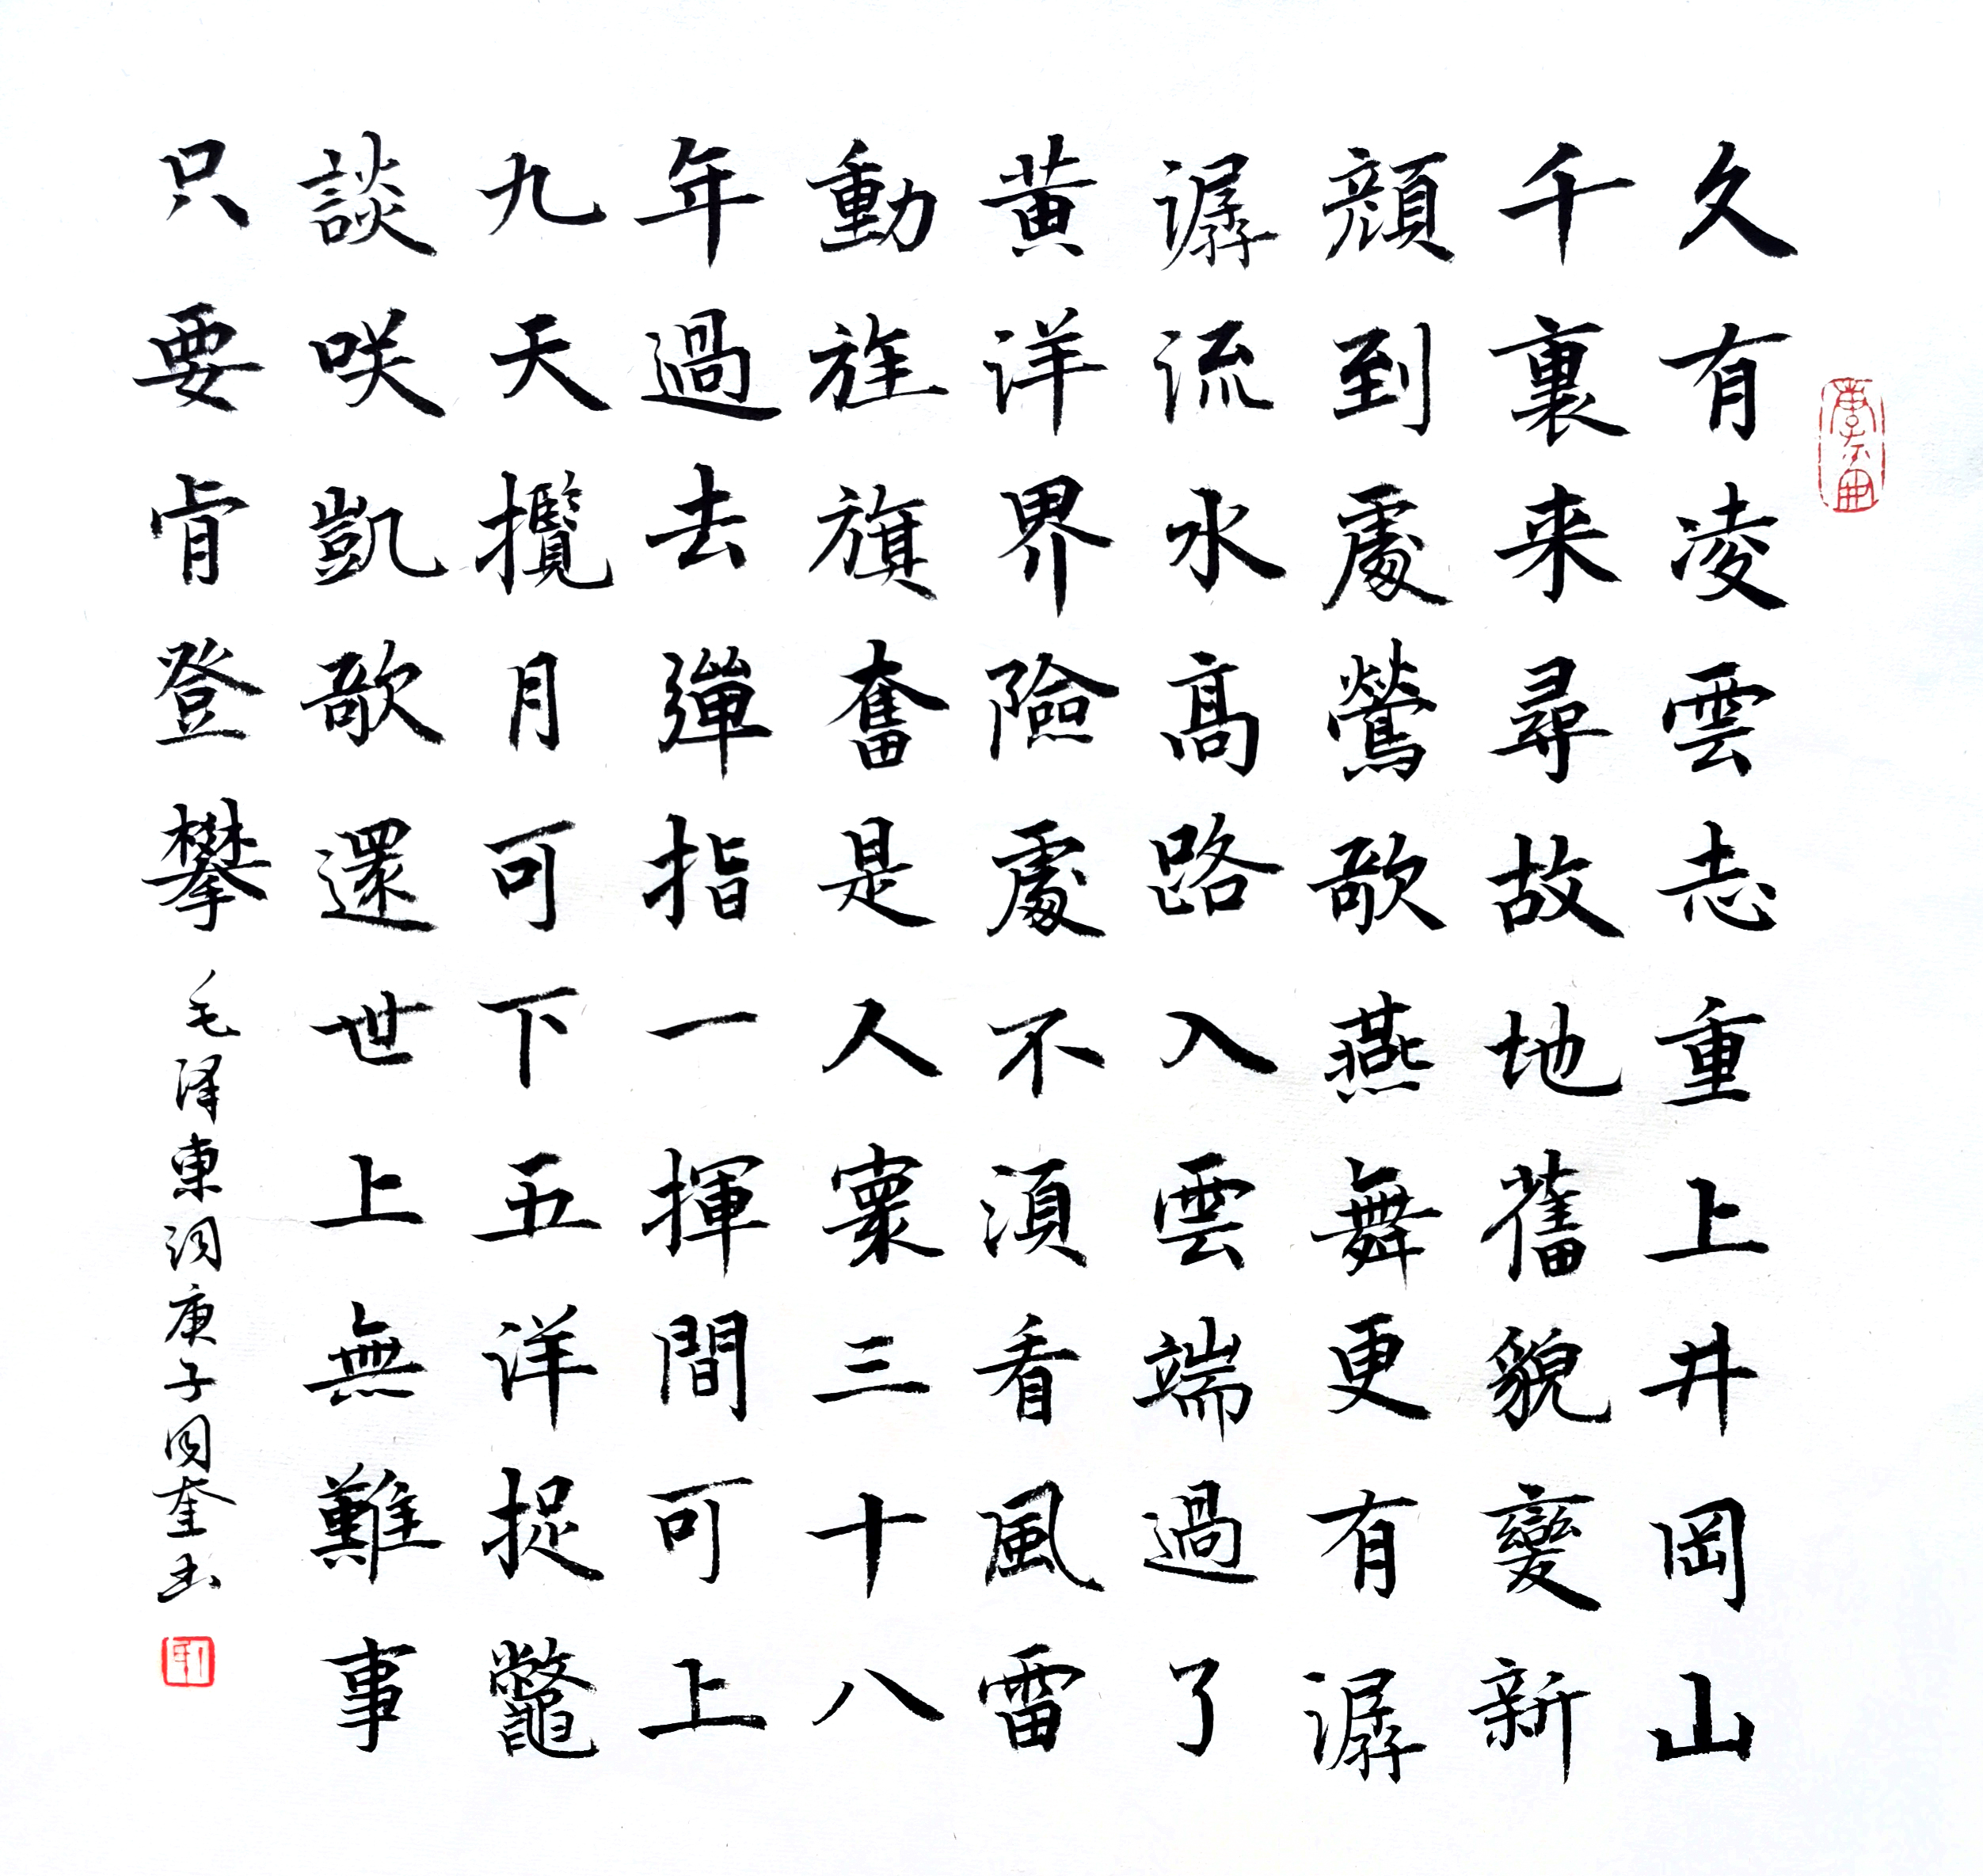 久有凌雲志重上井岡山
千裏来尋故地舊貌變新
顏到處鶯歌燕舞更有潺
潺流水高路入雲端過了
黄洋界險處不須看風雷
動旌旗奮是人寰三十八
年過去彈指一揮間可上
九天攬月可下五洋捉鼈
談咲凱歌還世上無難事
只要肯登攀
毛泽東词庚子同奎书